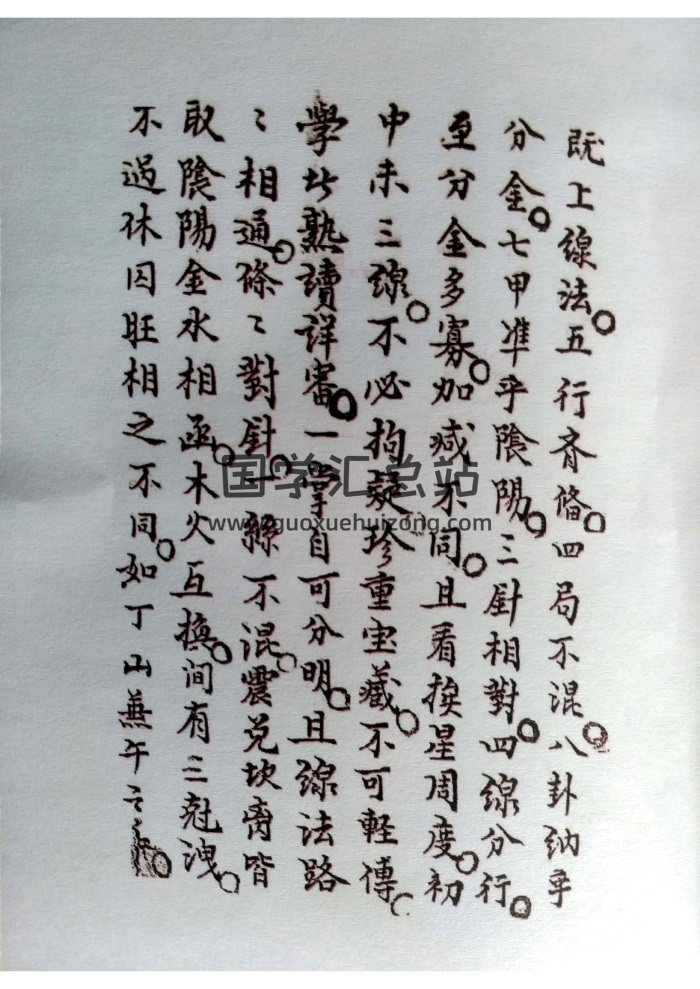 既上線法五行齐俻四局不混八卦纳乎
分金七甲準乎陰陽三針相對四線分行
至分金多寡加减不同且看挨星周度初
中末三線不必拘疑珍重宝藏不可輕傳
學此熟讀詳審一掌自可分明且線法路
々相通條々對針一絲不混震兑坎离皆
取陰陽金水相函木火互換间有三尅洩
不過休囚旺相之不同如丁山蕪午之
国学汇总站
www.guoxuehuizong.com